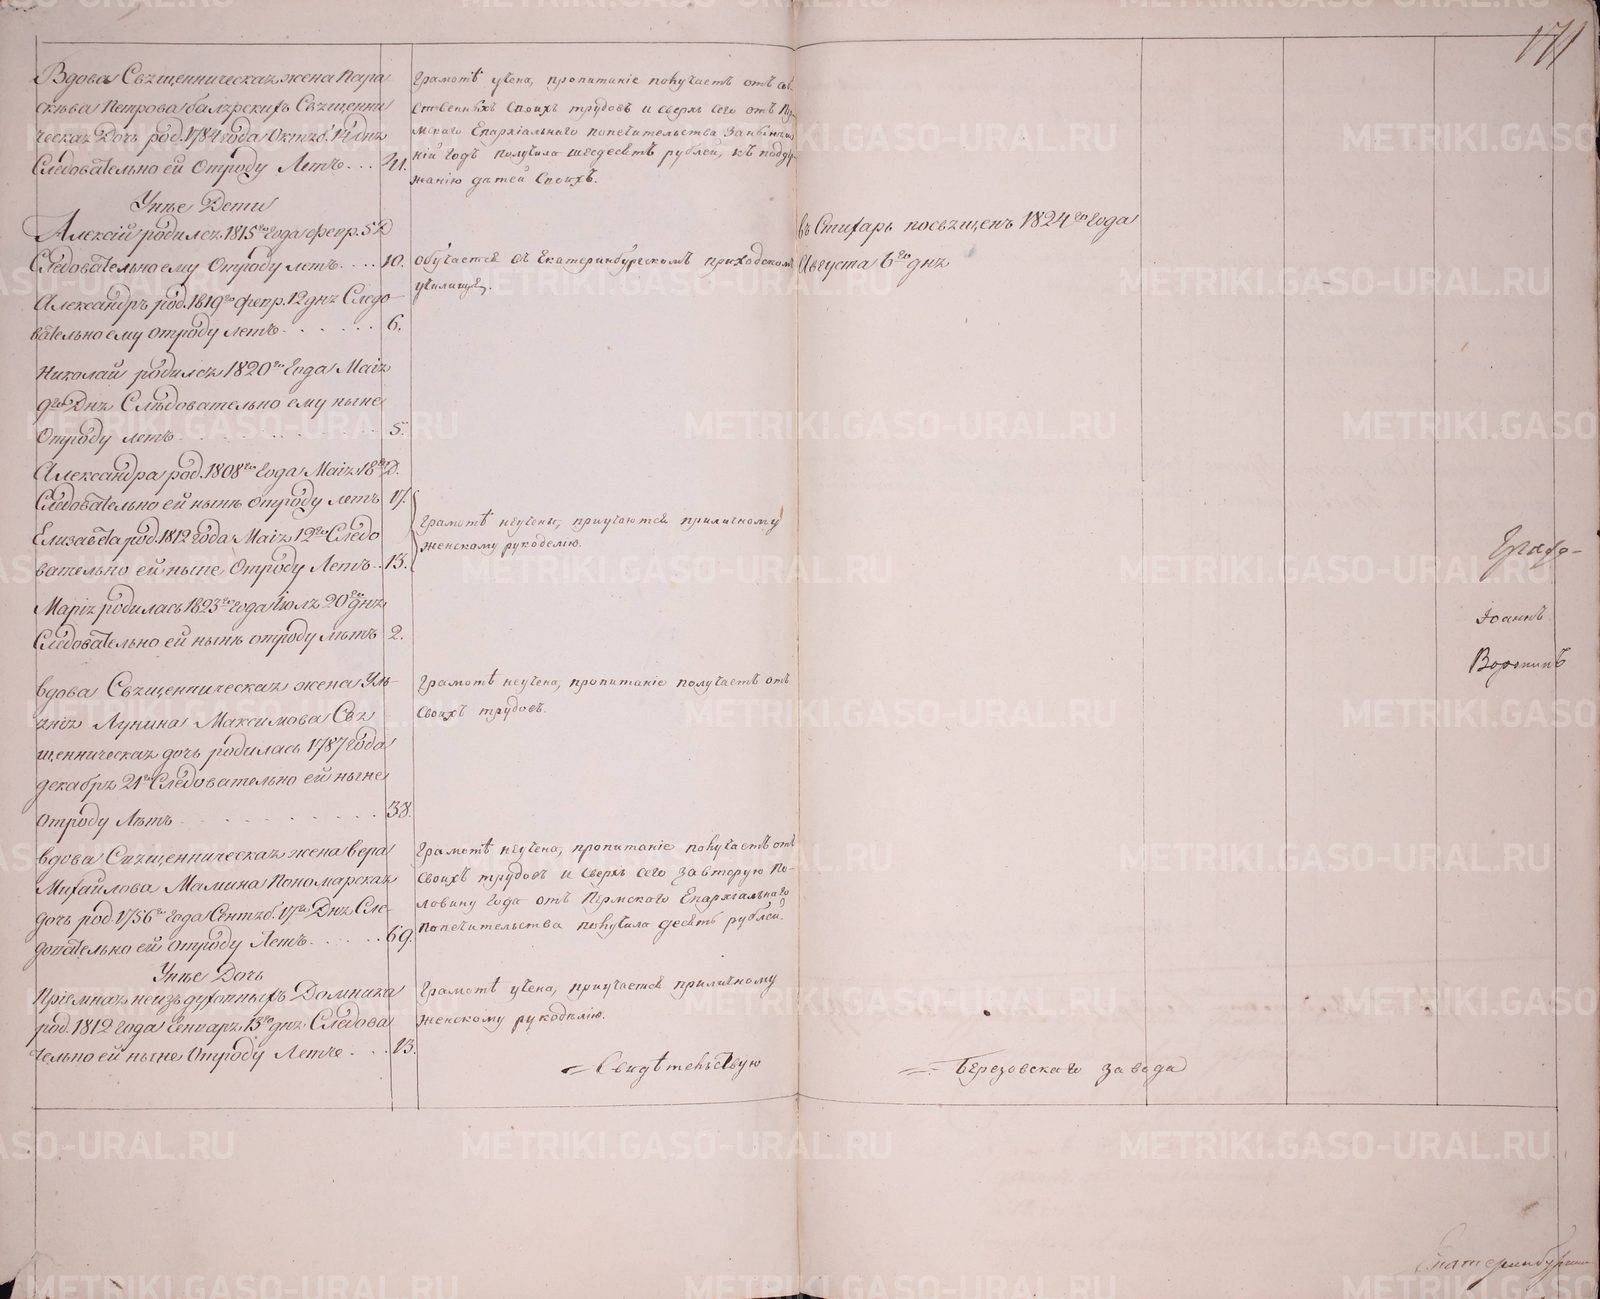 171
Вдова Священническая жена Пара
скѣва Петрова Священни
ческая Дочь род. 1784 года Октяб. 14 дня
Следовательно ей Отроду Летъ . . . 41.
Грамотѣ учена, пропитаніе получаетъ отъ соб
ственныхъ своихъ трудовъ и сверхъ сего отъ Пер
мскаго Епархіальнаго попечительства
ній годъ получила шесдесятъ рублей, къ поддер
жанію дѣтей своихъ.
У нее Дети
Алексій родился 1815го года февр. 5 Д
Следовательно ему Отроду летъ . . . . 10.
обучается въ Екатеринбургскомъ приходскомъ
училищѣ.
въ Стихарь посвященъ 1824го года
Августа 6го дня
Александръ род. 1819го февр. 12 дня Следо-
вательно ему отроду летъ . . . . . . 6.
Николай родился 1820го года Маія
9го Дня Слѣдовательно ему ныне
Отроду летъ . . . . . . . . . 5.
Александра род. 1808го года Маія 18го Д.
Следовательно ей нынѣ отроду летъ 17.
Елизавета род. 1812 года Маія 12го Следо
вательно ей ныне Отроду Летъ . . 13.
Грамотѣ неучены, приучаются приличному
женскому рукоделію.
Марія родилась 1823го года Іюля 20го дня
Следовательно ей нынѣ отроду лѣтъ 2.
вдова Священническая жена Уль-
янія Лунина Максимова Свя
щенническая дочь родилась 1787 года
декабря 21го Следовательно ей ныне
Отроду Лѣтъ . . . . . . . . . 38.
Грамотѣ неучена, пропитаніе получаетъ отъ
своихъ трудовъ.
вдова Священническая жена Вера
Михайлова Мамина Пономарская
дочь род. 1756го года Сентяб. 17го Дня Сле-
довательно ей отроду Летъ . . . . . . 69.
Грамотѣ неучена, пропитаніе получаетъ отъ
своихъ трудовъ и сверхъ сего за вторую по-
ловину года отъ Пермскаго Епархіальнаго
попечительства получила десять рублей.
У нее Дочь
Пріемная неизъ духовныхъ Домника
род. 1812 года Генваря 13го дня Следова
тельно ей ныне Отроду Летъ . . . 13.
Грамотѣ учена, приучается приличному
женскому рукодѣлію.
Свидѣтельствую
Березовскаго завода
Іоаннъ
Воронинъ